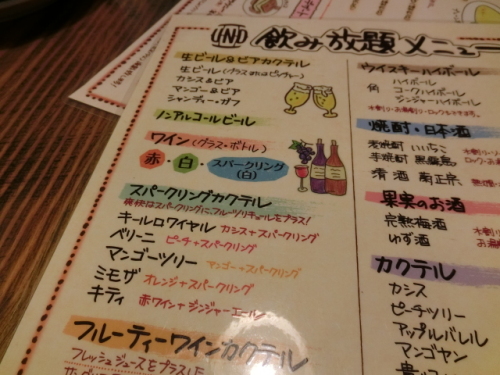 IND 飲み放題メニュー
生ビール&ビアカクテル
生ビール(グラスまたはピッチャー)
カシス&ビア
マンゴー&ビア
シャンディー・ガフ
ノンアルコールビール
ワイン(グラス・ボトル)
赤・白・スパークリング(白)
スパークリングカクテル
爽快スパークリングにフルーツリキュールをプラス!
キールロワイヤル カシス+スパークリング
ベリーニ ピーチ+スパークリング
マンゴーツリー マンゴー+スパークリング
ミモザ オレンジ+スパークリング
キティ 赤ワイン+ジンジャーエール
フルーティーワインカクテル
フレッシュジュースをプラスした
ウイスキーハイボール
ハイボール
角 コークハイボール
ジンジャーハイボール
焼酎・日本酒
麦焼酎 いいちこ
芋焼酎 黒霧島
清酒 菊正宗
果実のお酒
完熟梅酒
ゆず酒
カクテル
カシス
ピーチツリー
アップルバレル
マンゴヤン